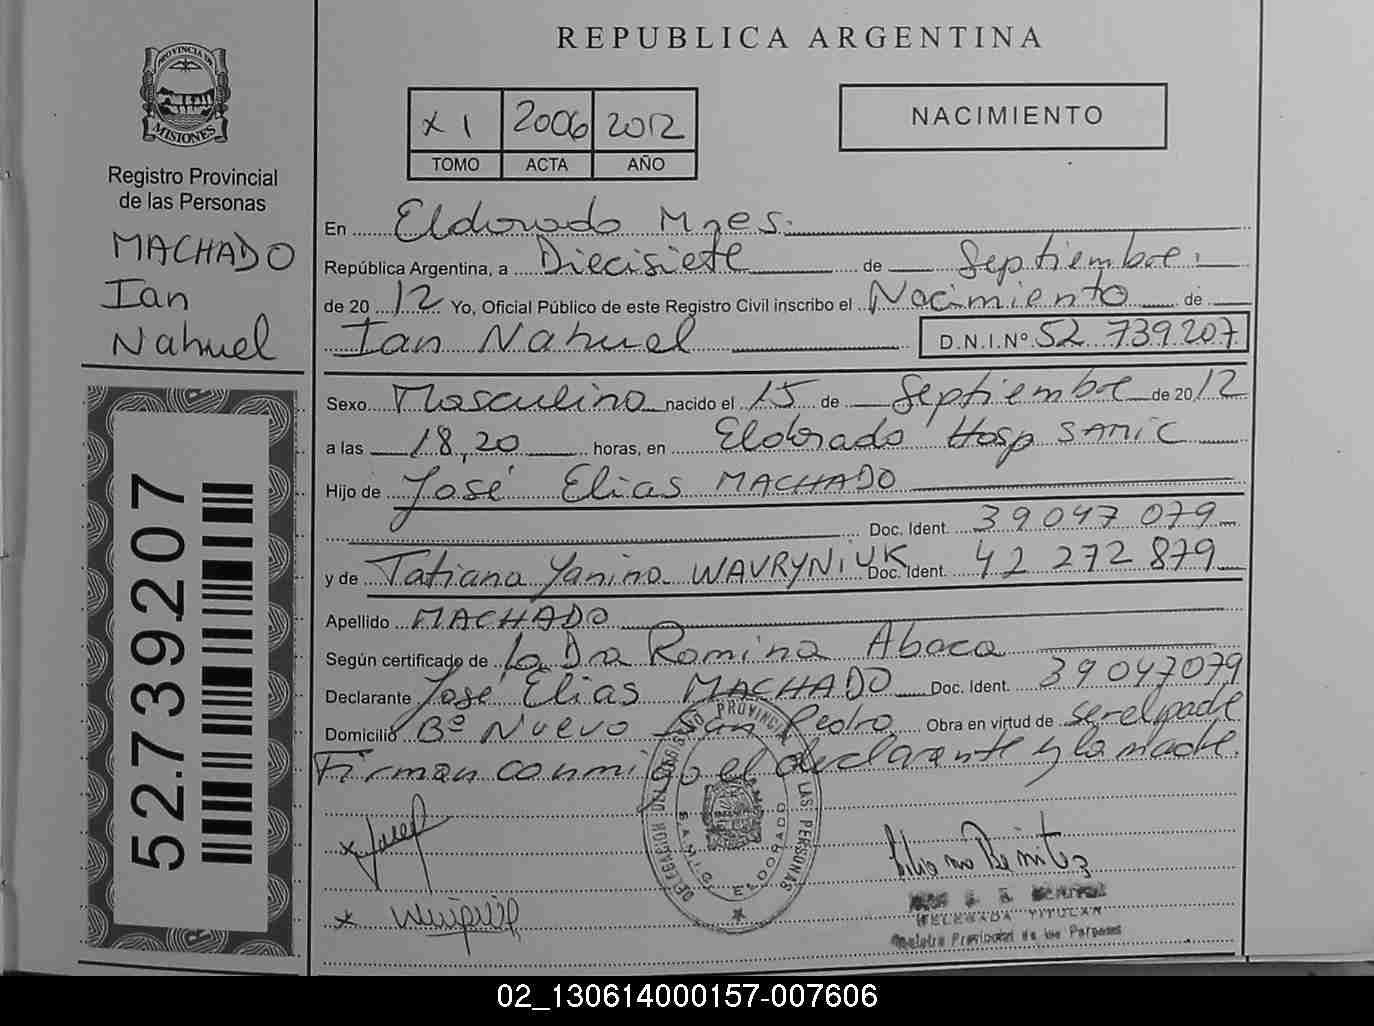 REPUBLICA ARGENTINA
PROVINCIA DE
MISIONES
Registro Provincial
de las Personas
MACHADO
Ian
Nahuel
52.739.207
XI 2006 2012
TOMO ACTA AÑO
NACIMIENTO
En Eldorado Mnes.
República Argentina, a Diecisiete de Septiembre
de 2012 Yo, Oficial Público de este Registro Civil inscribo el Nacimiento de
Ian Nahuel D.N.I.Nº 52 739.207
Sexo Masculino nacido el 15 de Septiembre de 2012
a las 18,20 horas, en Eldorado Hosp SAMIC
Hijo de José Elias MACHADO
Doc. Ident. 39 047 079
y de Tatiana Yanina WAVRYNIUK Doc. Ident. 42 272 879
Apellido MACHADO
Según certificado de la Dra Romina Abaca
Declarante José Elias MACHADO Doc. Ident. 39 047079
Domicilio Bº Nuevo San Pedro Obra en virtud de ser el padre
Firman conmigo el declarante y la madre.
DELEGACION DEL REGISTRO PROVINCIAL DE LAS PERSONAS
S.A.M.I.C. ELDORADO
DELEGADA TITULAR
Registro Provincial de las Personas
02_130614000157-007606